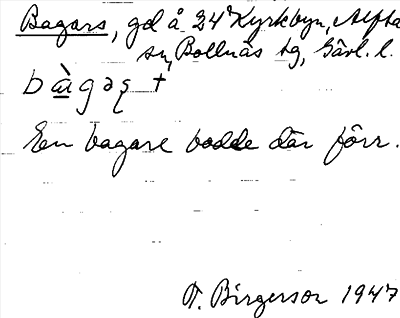 Bagars, gd å 24 Kyrkbyn, Alfta
sn, Bollnäs tg, Gävl. l.
bàgaʂ †
En bagare bodde där förr.
F. Birgerson 1947